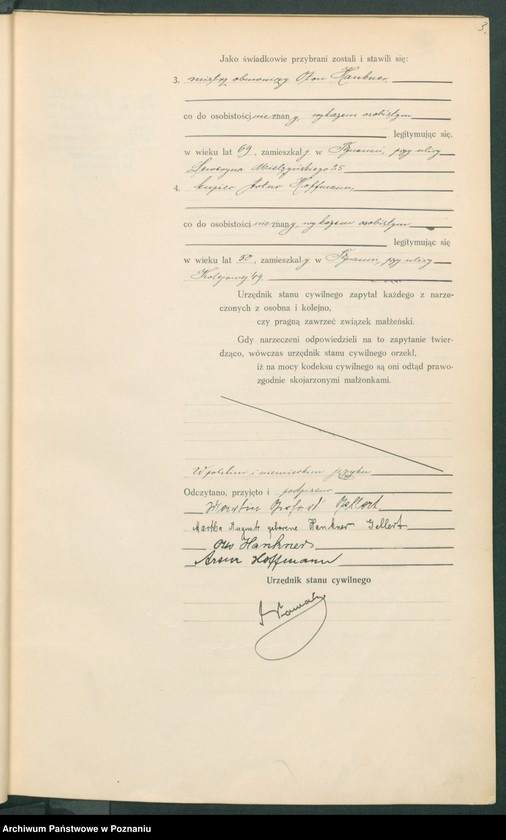 3.
Jako świadkowie przybrani zostali i stawili się:
3. mistrz Oton Hankner
co do osobistości nie znany, wykazem osobistym
legitymując się,
w wieku lat 69, zamieszkały w Poznaniu, przy ulicy
Seweryna Mielżyńskiego 25
4. kupiec Artur Hoffmann
co do osobistości nie znany, wykazem osobistym
legitymując się
w wieku lat 50, zamieszkały w Poznaniu, przy ulicy
Kolejowej 49.
Urzędnik stanu cywilnego zapytał każdego z narze-
czonych z osobna i kolejno,
czy pragną zawrzeć związek małżeński.
Gdy narzeczeni odpowiedzieli na to zapytanie twier-
dząco, wówczas urzędnik stanu cywilnego orzekł,
iż na mocy kodeksu cywilnego są oni odtąd prawo-
zgodnie skojarzonymi małżonkami.
W polskim i niemieckim języku
Odczytano, przyjęto i podpisano
Gellert
Martha Auguste geborene Hankner Gellert
Otto Hankner
Artur Hoffmann
Urzędnik stanu cywilnego
Archiwum Państwowe w Poznaniu